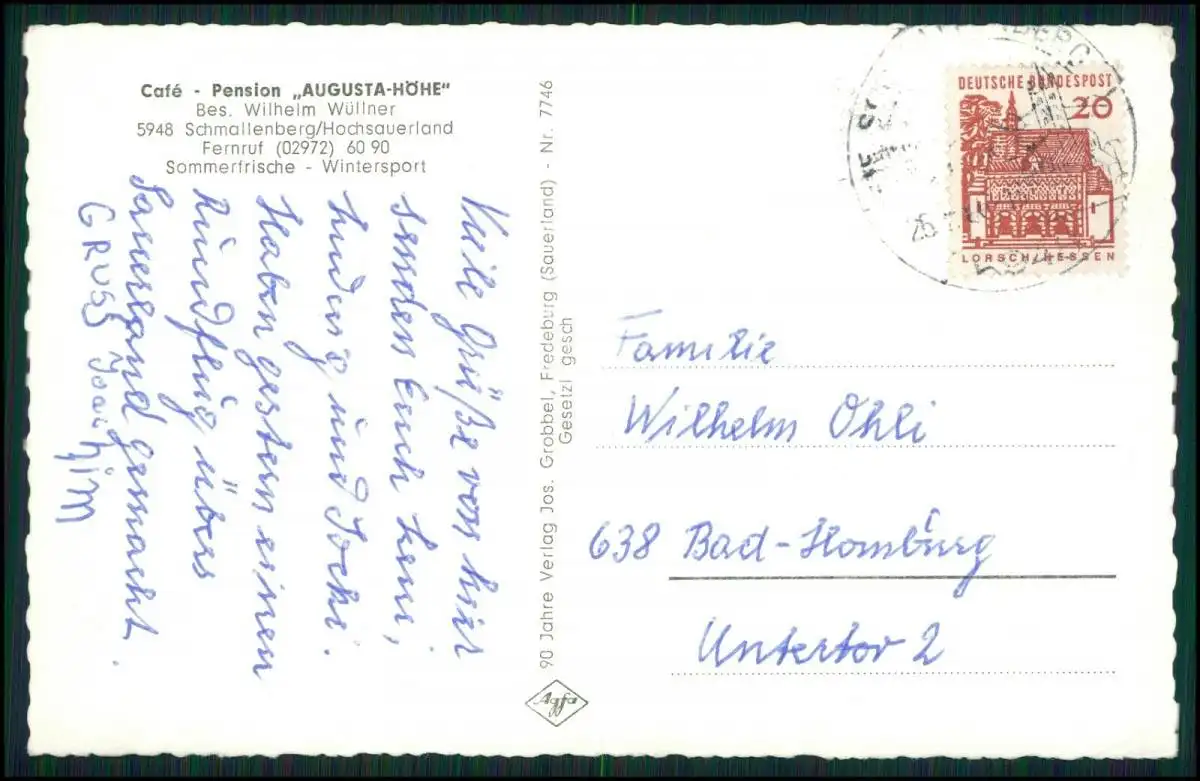 Café - Pension „AUGUSTA-HÖHE"
Bes. Wilhelm Wüllner
5948 Schmallenberg/Hochsauerland
Fernruf (02972) 60 90
Sommerfrische - Wintersport
Viele Grüße von hier
senden Euch Leni,
Ludwig und Jochi.
Haben gestern einen
Rundflug übers
Sauerland gemacht.
GRUSS Joachim
90 Jahre Verlag Jos. Grobbel, Fredeburg (Sauerland) - Nr. 7746
Gesetzl gesch
Agfa
DEUTSCHE BUNDESPOST
20
LORSCH/HESSEN
Familie
Wilhelm Ohli
638 Bad-Homburg
Untertor 2